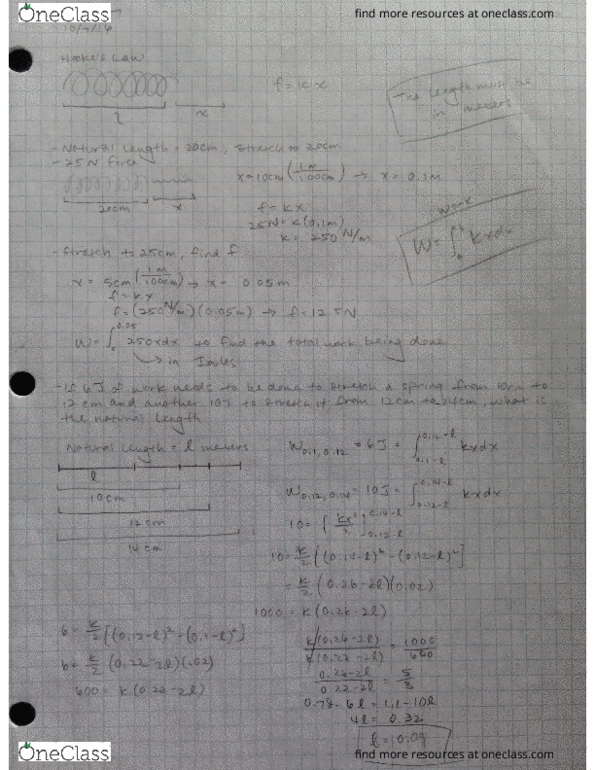 OneClass
find more resources at oneclass.com
10/7/16
Hooke's Law
f = kx
The length must be in meters
l
x
- Natural length = 20cm, stretch to 30cm
- 25N force
x = 10cm (1m/100cm) → x = 0.1m
20cm
x
f = kx
25N = k(0.1m)
k = 250 N/m
Work
W = ∫₀ˣ kx dx
- Stretch to 25cm, find f
x = 5cm (1m/100cm) → x = 0.05m
f = kx
f = (250 N/m)(0.05m) → f = 12.5N
W = ∫₀^0.05 250x dx to find the total work being done
→ in Joules
- If 6J of work needs to be done to stretch a spring from 10cm to
12 cm and another 10J to stretch it from 12cm to 14cm, what is
the natural length
Natural length = l meters
l
10cm
12cm
14 cm
W0.1, 0.12 = 6J = ∫_{0.1-l}^{0.12-l} kx dx
W0.12, 0.14 = 10J = ∫_{0.12-l}^{0.14-l} kx dx
10 = [kx²/2]_{0.12-l}^{0.14-l}
10 = k/2 [(0.14-l)² - (0.12-l)²]
= k/2 (0.26-2l)(0.02)
1000 = k(0.26-2l)
6 = k/2 [(0.12-l)² - (0.1-l)²]
6 = k/2 (0.22-2l)(.02)
600 = k(0.22-2l)
k(0.26-2l)/k(0.22-2l) = 1000/600
0.26-2l/0.22-2l = 5/3
0.78-6l = 1.1-10l
4l = 0.32
OneClass
find more resources at oneclass.com